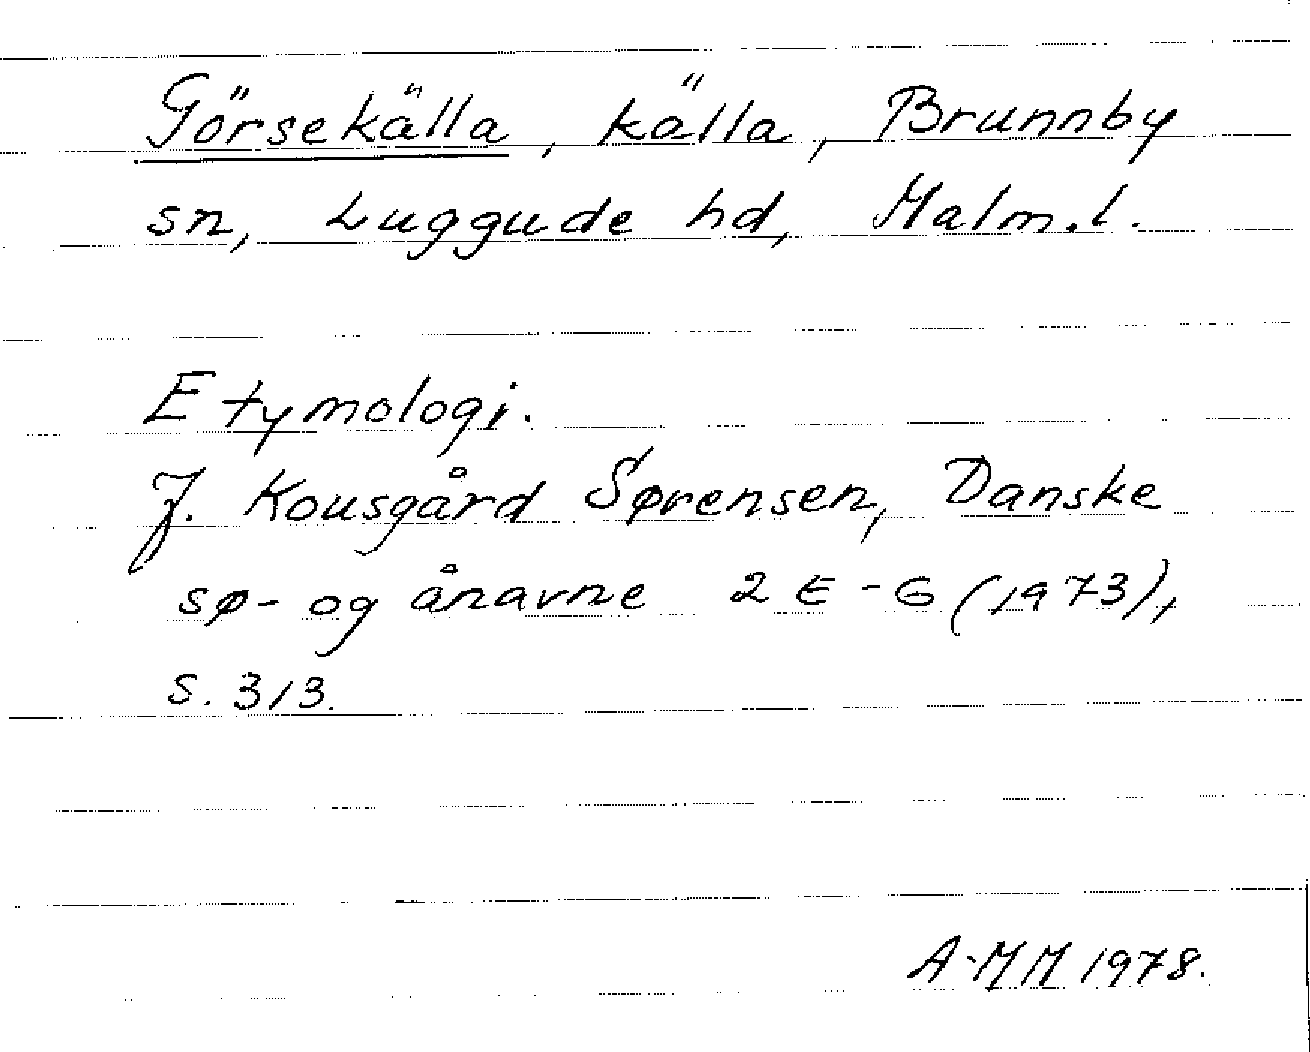 Görsekälla, källa, Brunnby
sn, Luggude hd, Malm.l.
Etymologi.
J. Kousgård Sørensen, Danske
sø- og ånavne 2 E-G (1973),
s. 313.
A-MM 1978.